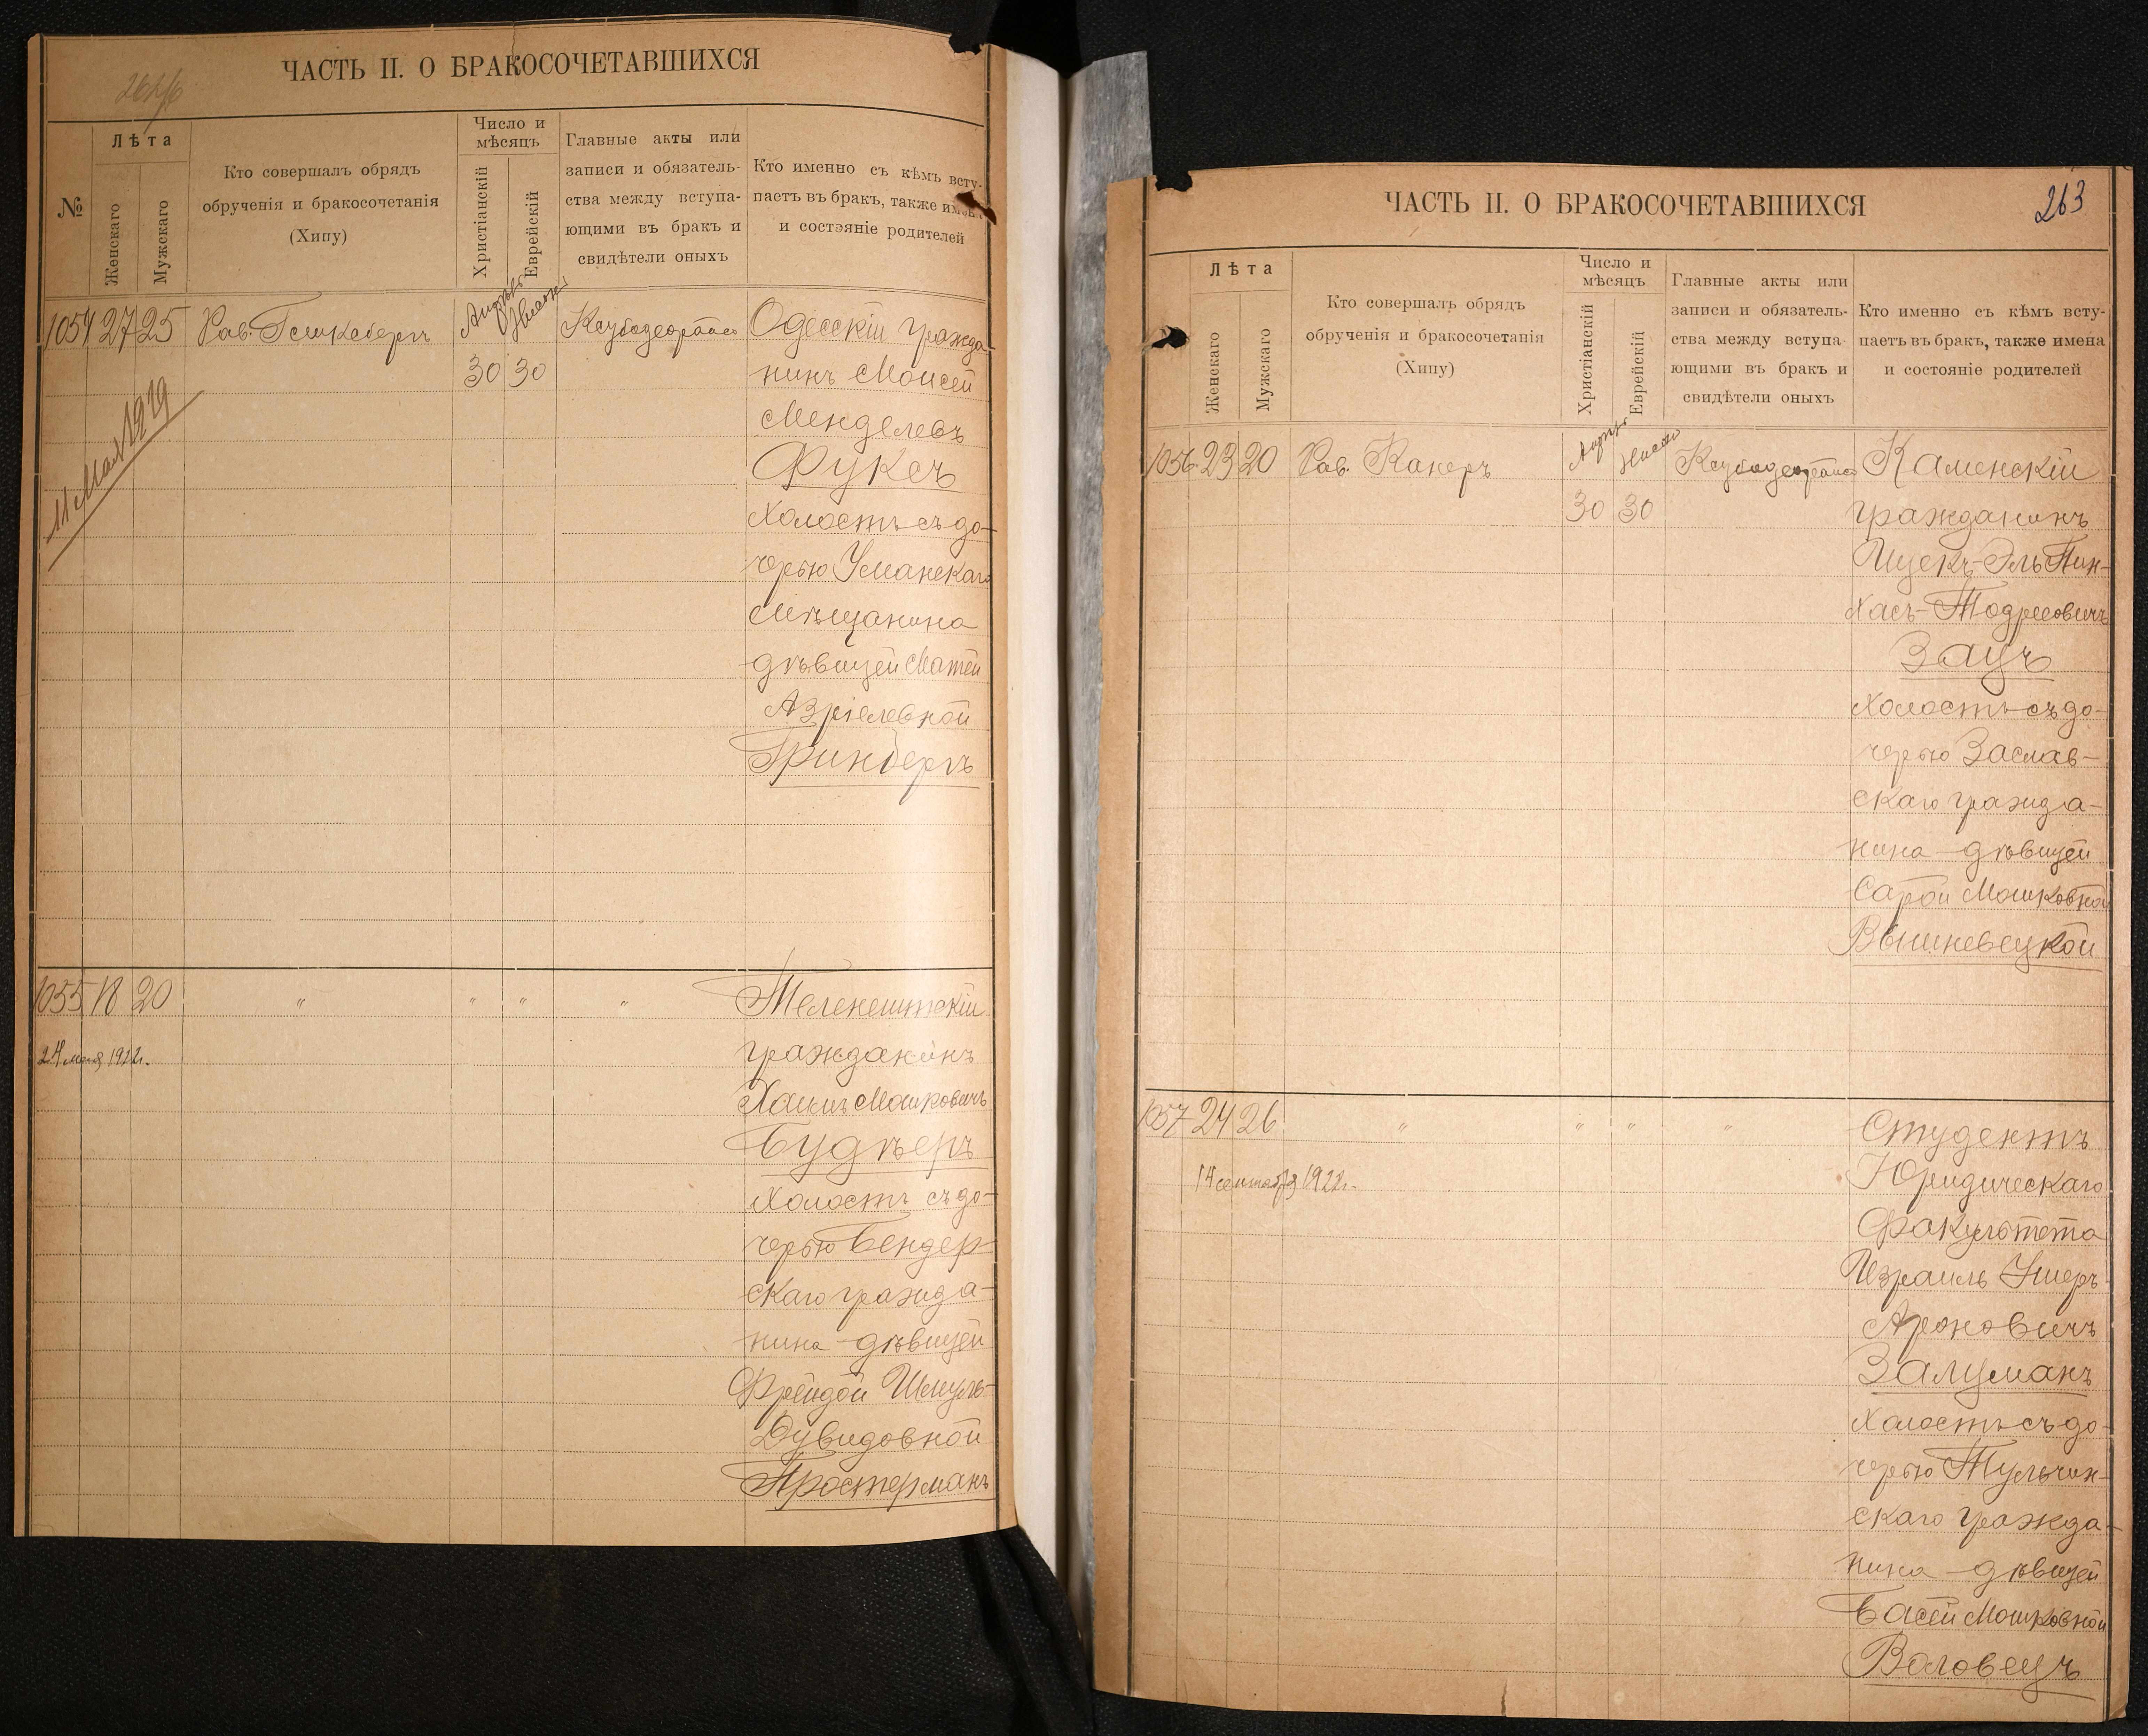 ЧАСТЬ II. О БРАКОСОЧЕТАВШИХСЯ
№
Лѣта
Женскаго
Мужскаго
Кто совершалъ обрядъ
обрученія и бракосочетанія
(Хипу)
Число и
мѣсяцъ
Христіанскій
Еврейскій
Главные акты или
записи и обязатель-
ства между вступа-
ющими въ бракъ и
свидѣтели оныхъ
Кто именно съ кѣмъ всту-
паетъ въ бракъ, также
и состояніе родителей
1054 27 25 Рав.
30 30
11 Мая 1919
Одесскій гражда-
нинъ Моисей
Менделевъ
Фуксъ
Холостъ съ до-
черью Уманскаго
Мѣщанина
дѣвицей Матей
Азріелевной
Гринбергъ
1055 18 20 " " " "
24 мая 1922г.
Теленештскій
гражданинъ
Хаимъ Мошковичъ
Будѣеръ
Холостъ съ до-
черью Бендер-
скаго гражда-
нина дѣвицей
Фрейдой Шмуль-
Дувидовной
Простерманъ
ЧАСТЬ II. О БРАКОСОЧЕТАВШИХСЯ
263
Лѣта
Женскаго
Мужскаго
Кто совершалъ обрядъ
обрученія и бракосочетанія
(Хипу)
Число и
мѣсяцъ
Христіанскій
Еврейскій
Главные акты или
записи и обязатель-
ства между вступа
ющими въ бракъ и
свидѣтели оныхъ
Кто именно съ кѣмъ всту-
паетъ въ бракъ, также имена
и состояніе родителей
1056 23 20 Рав. Канеръ
30 30
Каменскій
гражданинъ
Ицекъ-Эль Пин-
хасъ-Тодресовичъ
Зацъ
Холостъ съ до-
черью Заслав-
скаго гражда-
нина дѣвицей
Сарой Мошковной
Вышневецкой
1057 24 26 " " " "
14 сентября 1922г.
Студентъ
Юридическаго
Факультета
Израиль Ушеръ
Ароновичъ
Залцманъ
Холостъ съ до-
черью Тульчин-
скаго гражда-
нина дѣвицей
Басей Мошковной
Воловецъ